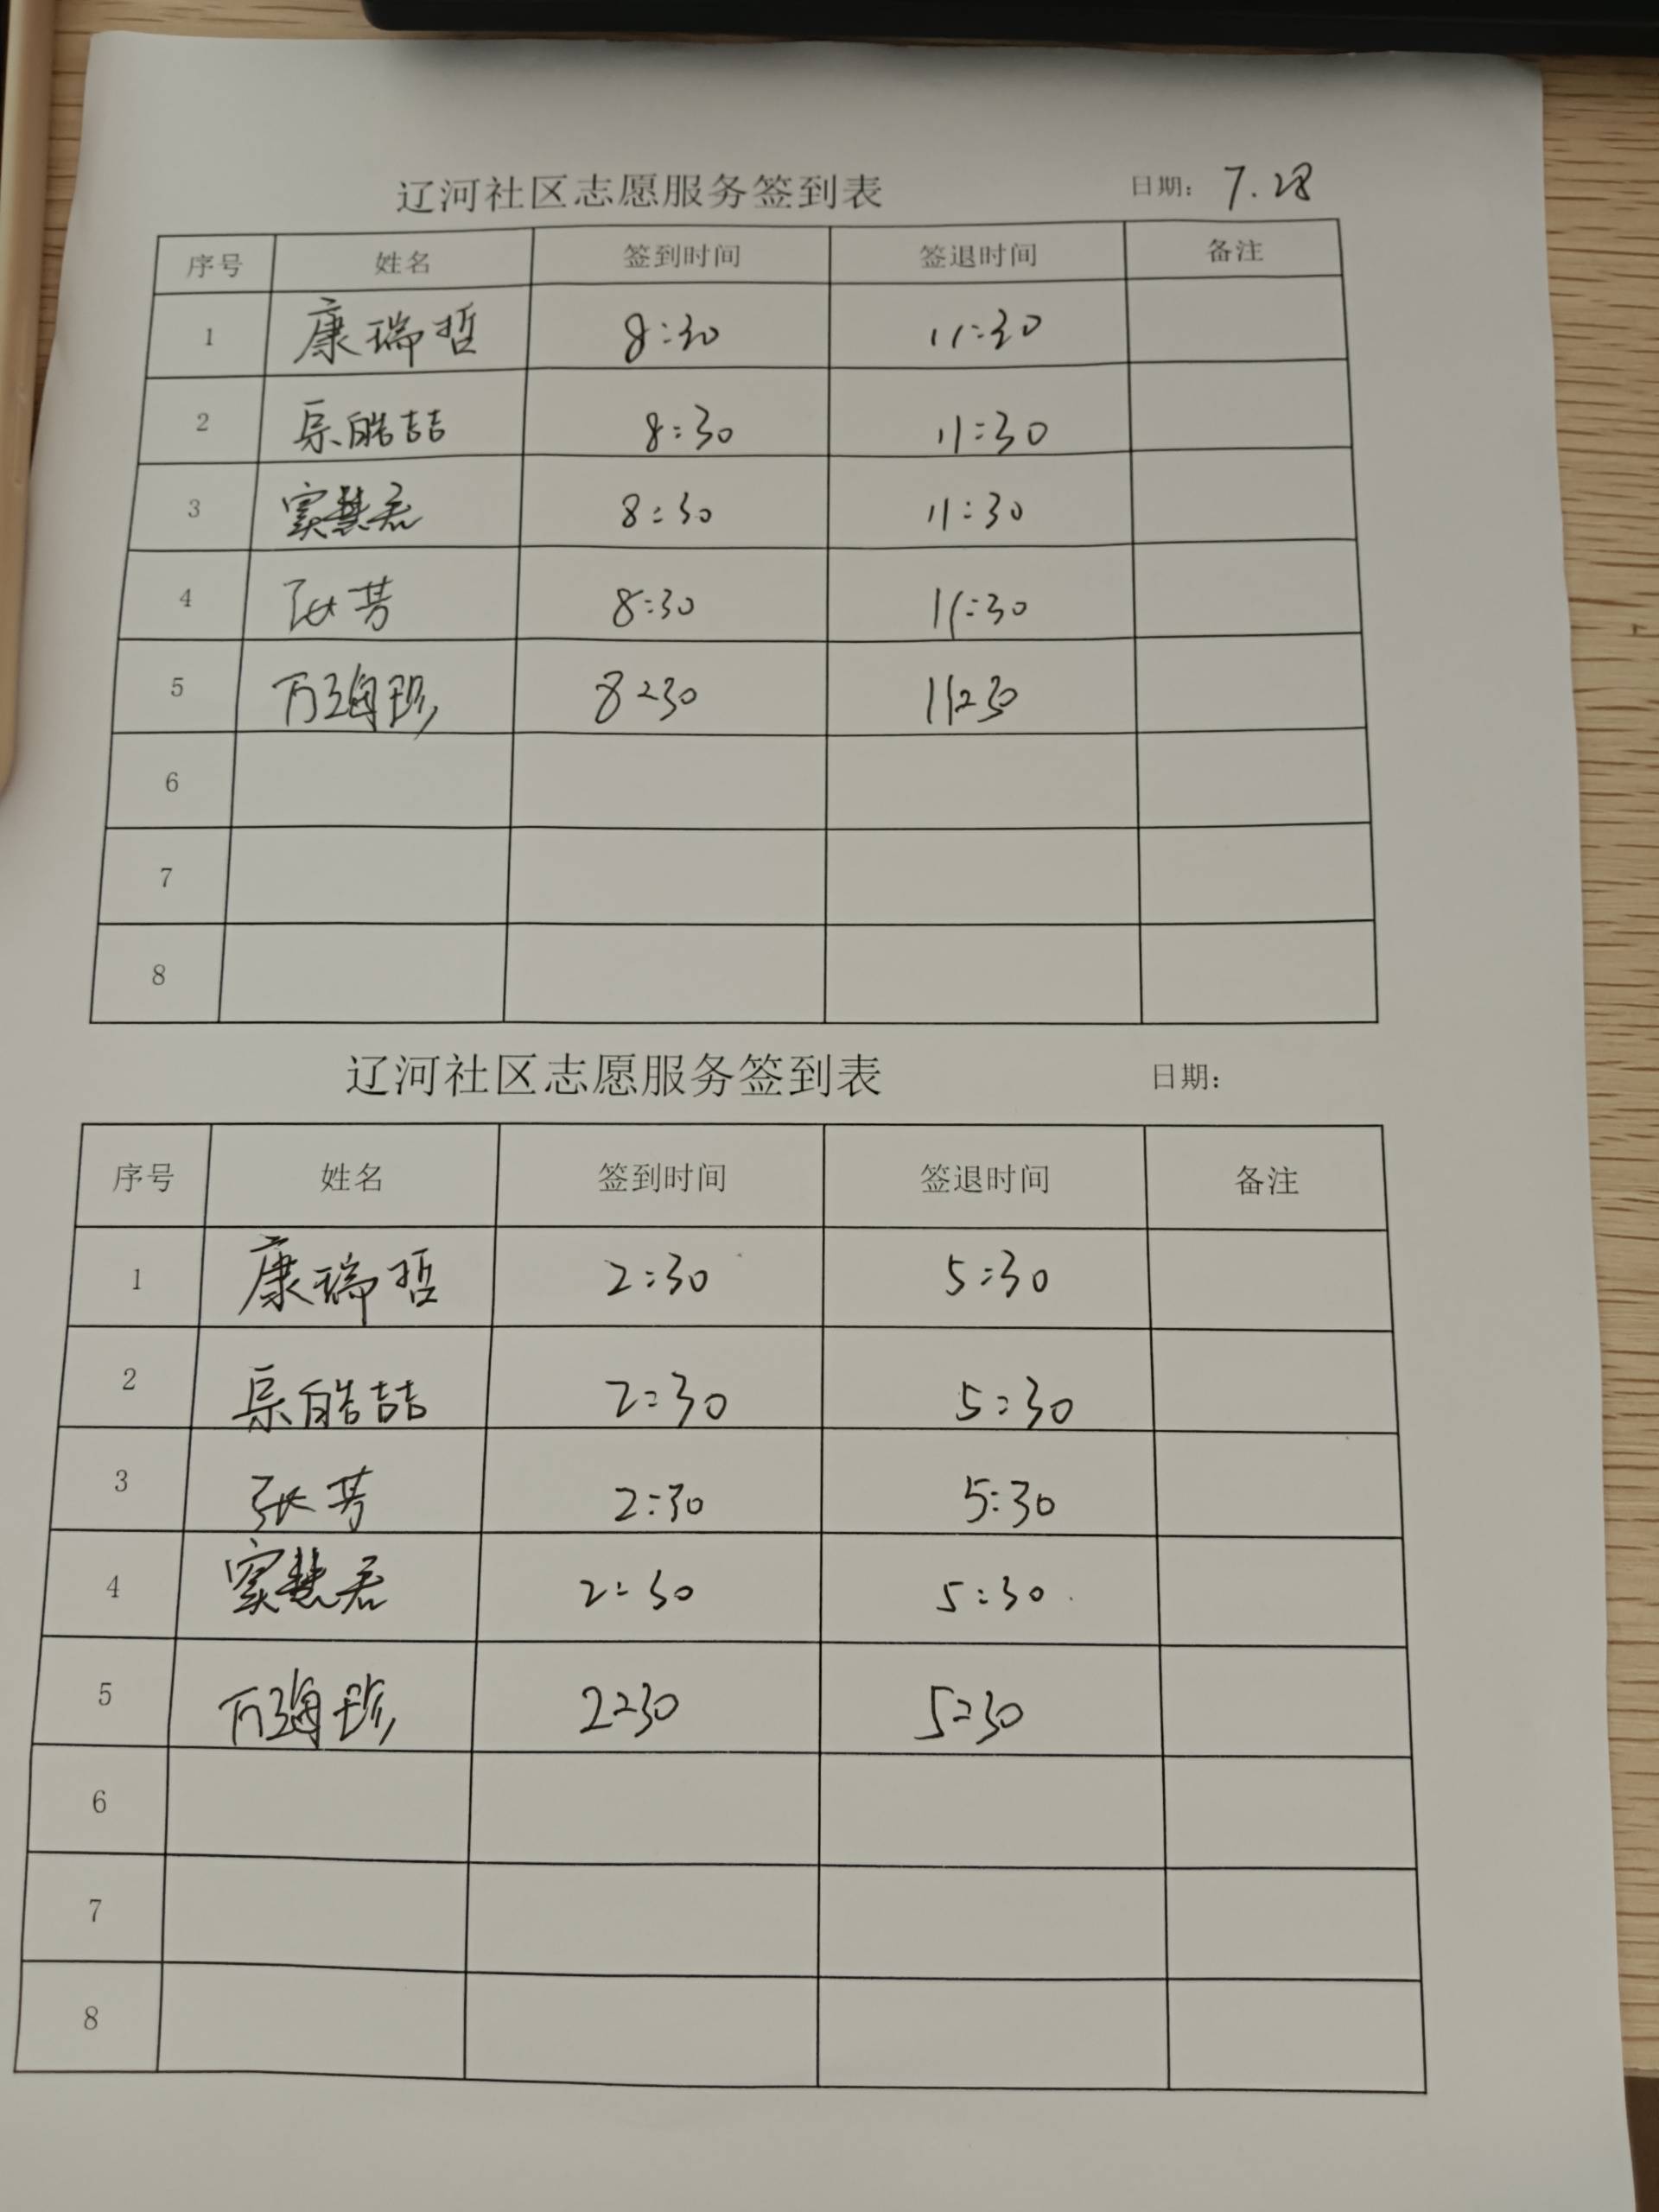 辽河社区志愿服务签到表 日期: 7.28
序号 姓名 签到时间 签退时间 备注
1 康瑞哲 8:30 11:30
2 皓喆 8:30 11:30
3 窦慧君 8:30 11:30
4 张芳 8:30 11:30
5 万海珍 8:30 11:30
6
7
8
辽河社区志愿服务签到表 日期:
序号 姓名 签到时间 签退时间 备注
1 康瑞哲 2:30 5:30
2 皓喆 2:30 5:30
3 张芳 2:30 5:30
4 窦慧君 2:30 5:30
5 万海珍 2:30 5:30
6
7
8